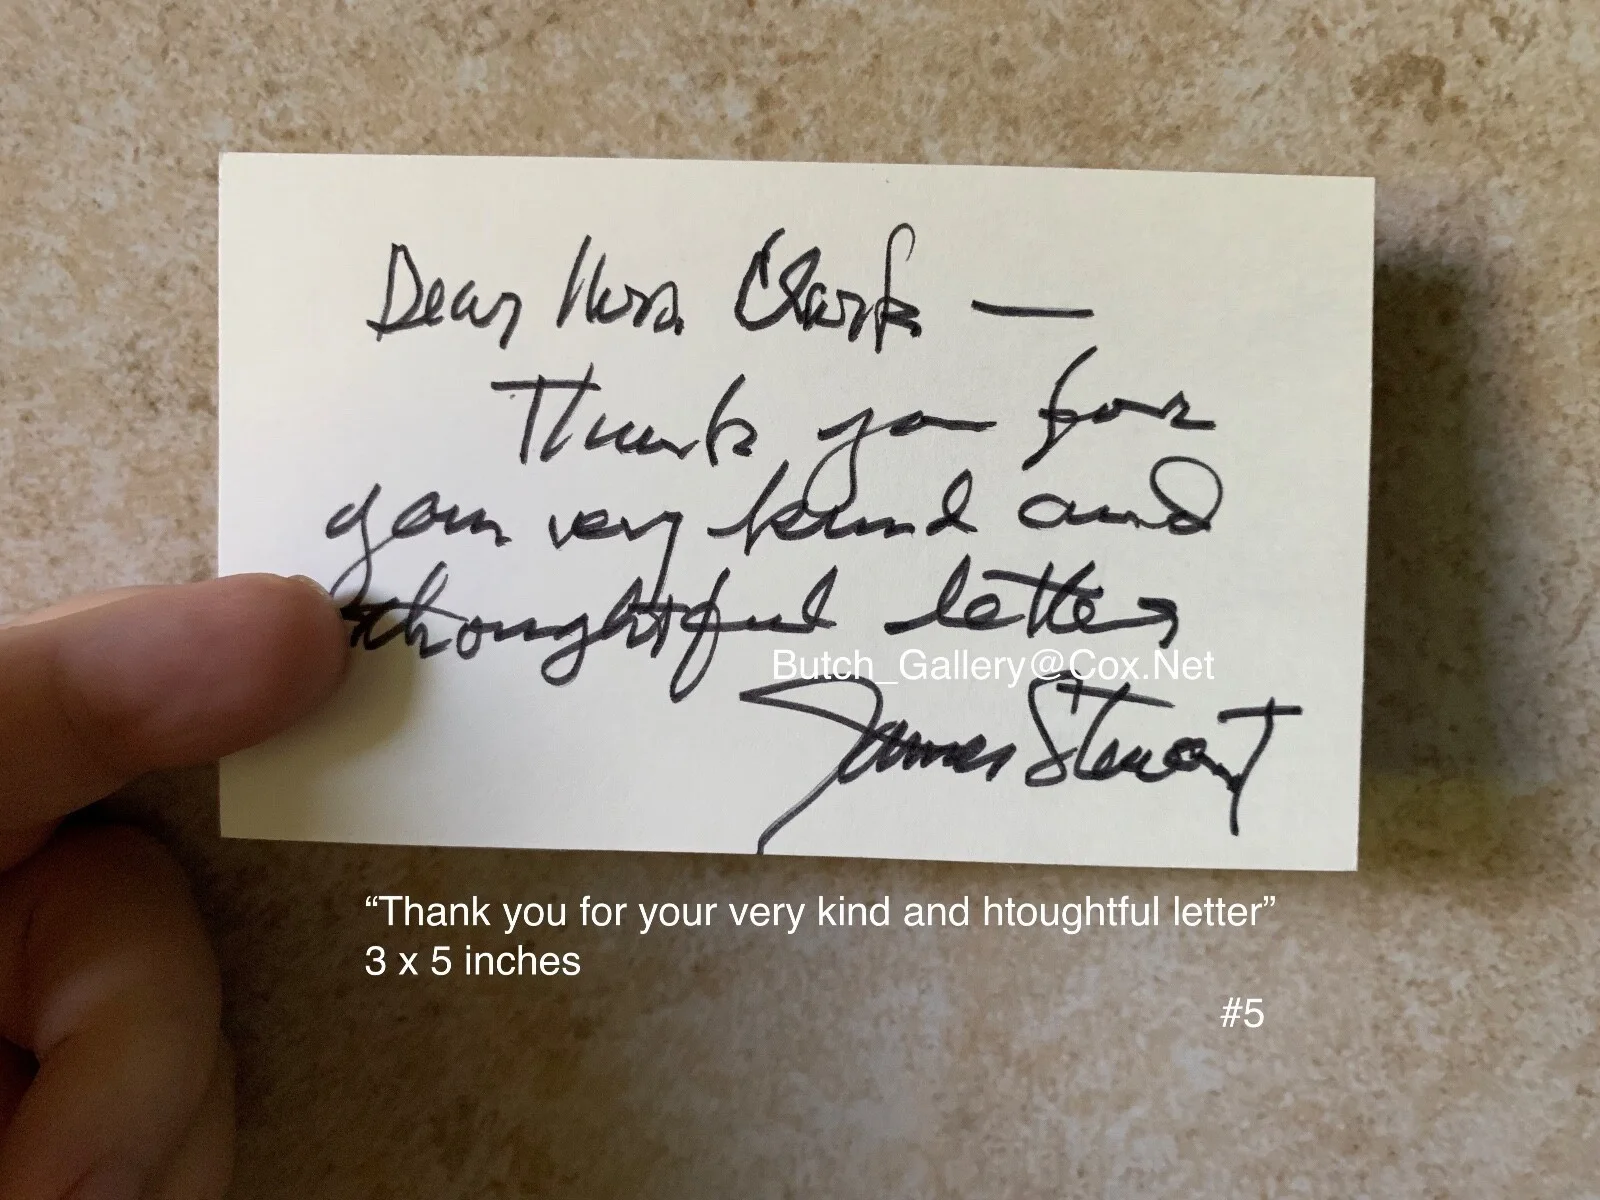 Dear Mrs. Clark —
Thank you for
your very kind and
thoughtful letter
Butch_Gallery@Cox.Net
James Stewart
“Thank you for your very kind and htoughtful letter”
3 x 5 inches
#5